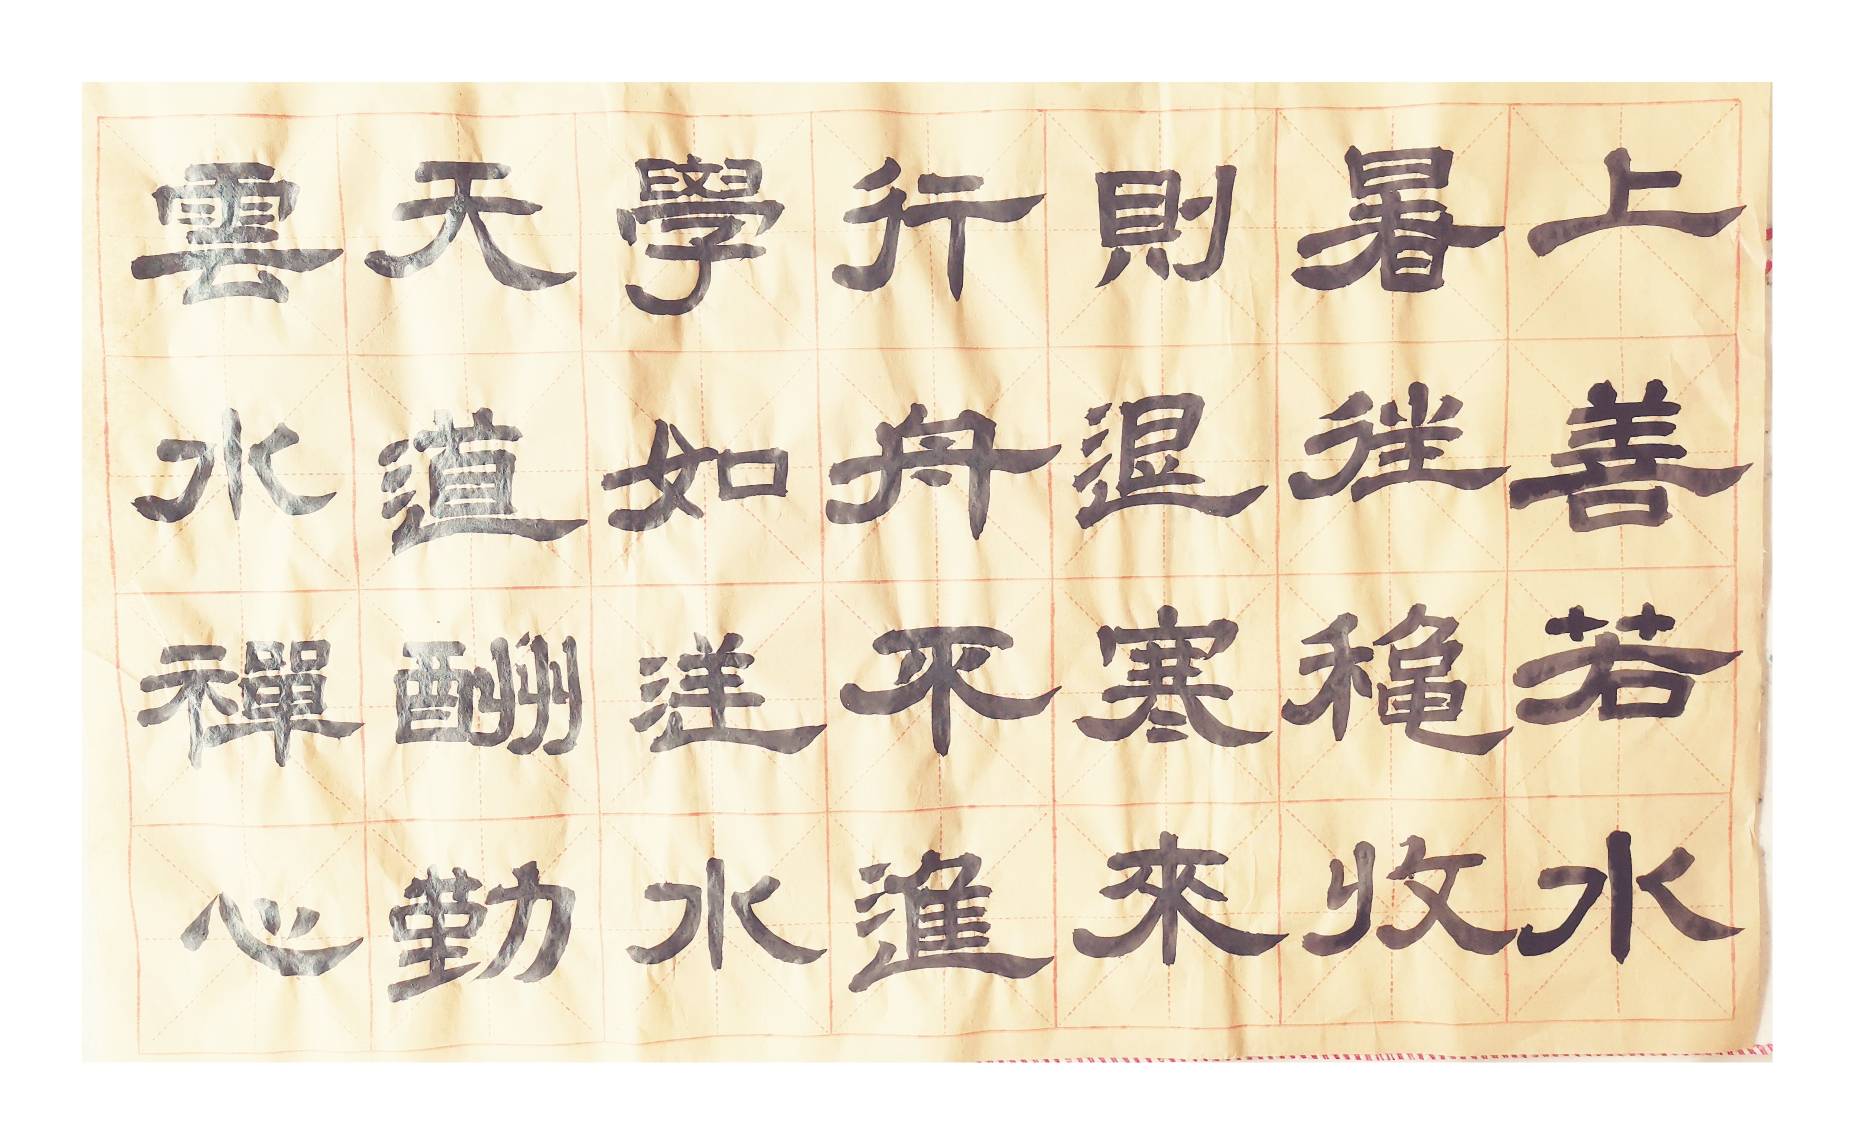 雲水禪心
天道酬勤
學如逆水
行舟不進
則退寒來
暑徃穐收
上善若水